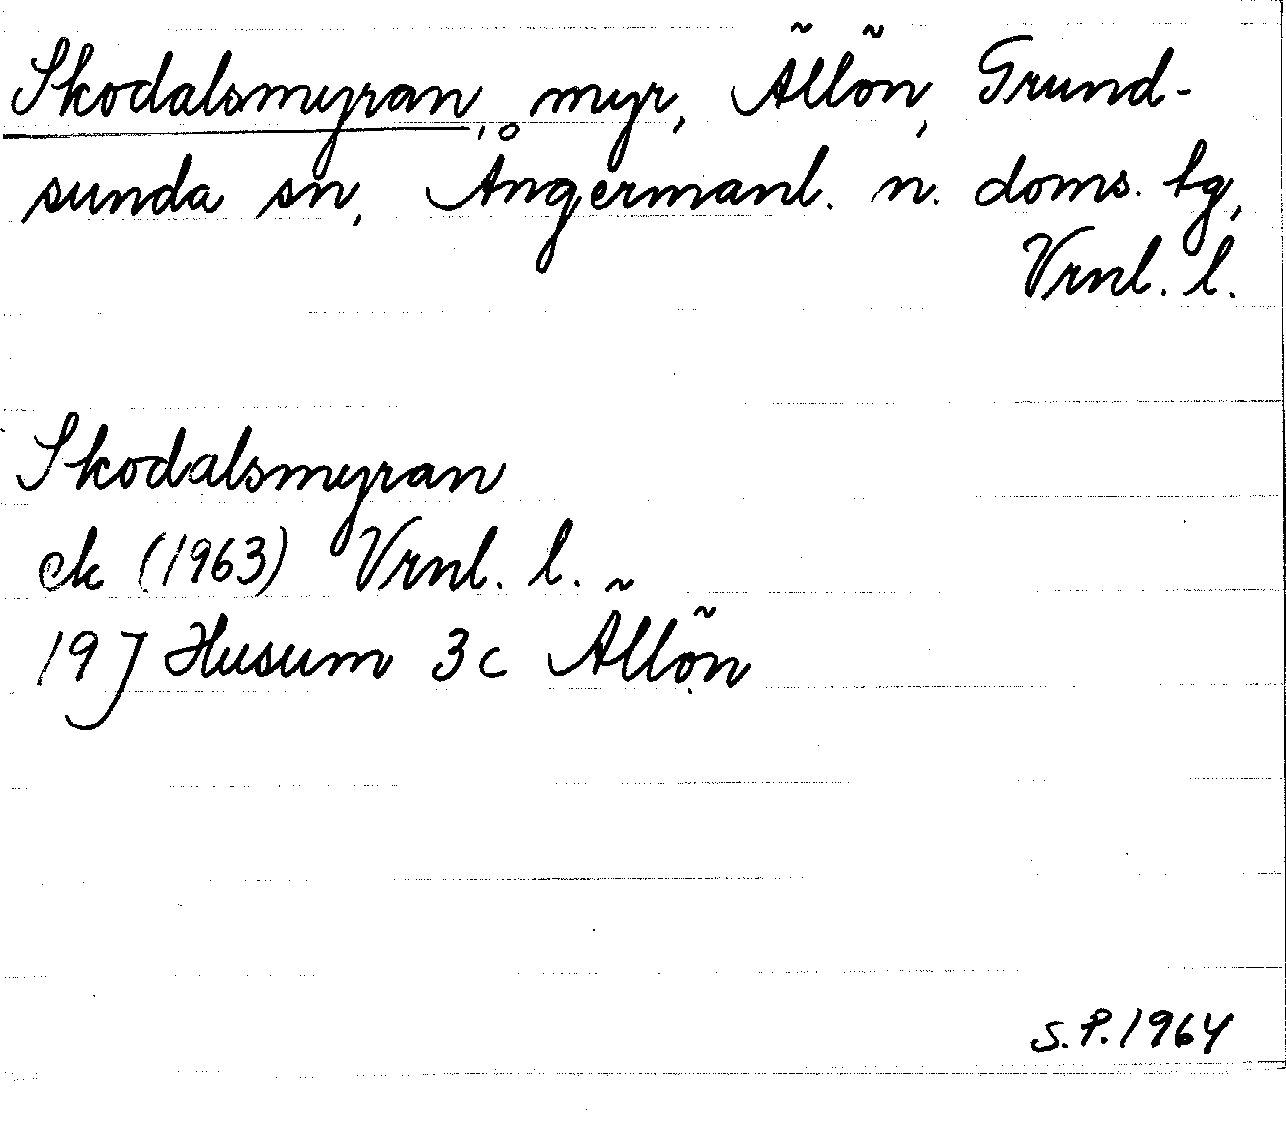 Skodalsmyran, myr, Ällön, Grund-
sunda sn, Ångermanl. n. doms. tg,
Vrnl. l.
Skodalsmyran
ek (1963) Vrnl. l.
19 J Husum 3c Ällön
S.P.1964